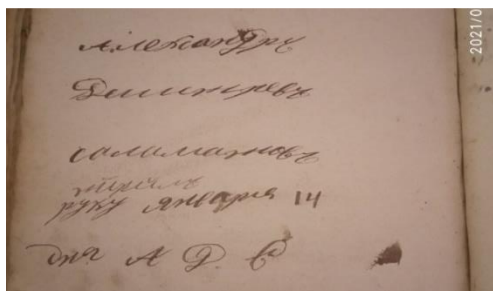 Александръ
Димитревъ
саламатовъ
терялъ
руку января 14
дня А Д С
2021/0